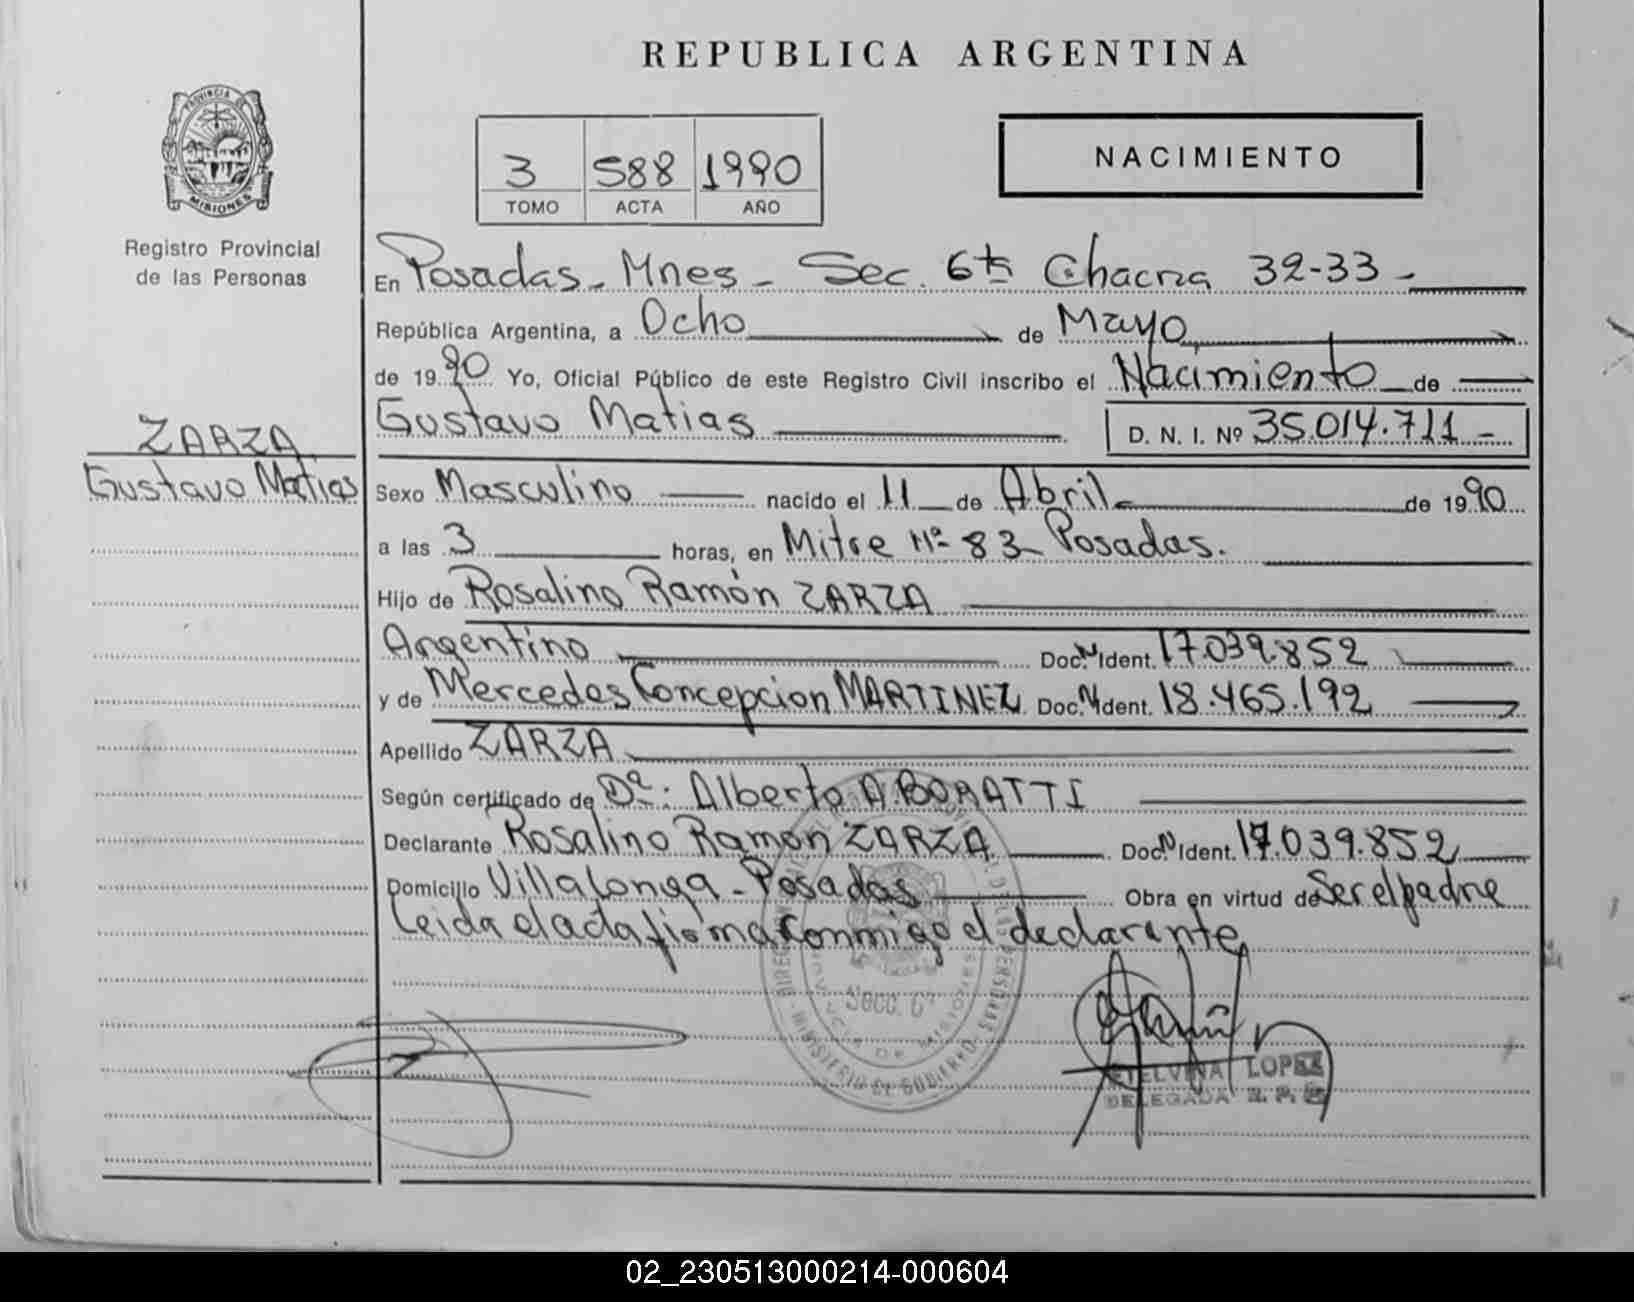 REPUBLICA ARGENTINA
PROVINCIA DE
MISIONES
Registro Provincial
de las Personas
3 588 1990
TOMO ACTA AÑO
NACIMIENTO
En Posadas - Mnes - Sec. 6ta Chacra 32-33 -
República Argentina, a Ocho de Mayo
de 1990 Yo, Oficial Público de este Registro Civil inscribo el Nacimiento de
Gustavo Matias D. N. I. Nº 35.014.711 -
ZARZA
Gustavo Matias
Sexo Masculino nacido el 11 de Abril de 1990
a las 3 horas, en Mitre Nº 83 - Posadas.
Hijo de Rosalino Ramón ZARZA
Argentino Doc. N Ident. 17.039.852
y de Mercedes Concepcion MARTINEZ Doc. N Ident. 18.465.192
Apellido ZARZA
Según certificado de Dr. Alberto A. BORATTI
Declarante Rosalino Ramon ZARZA Doc. N Ident. 17.039.852
Domicilio Villalonga - Posadas Obra en virtud de Ser el padre
Leida el acta firma conmigo el declarante
MINISTERIO DE GOBIERNO
PROVINCIA DE MISIONES
Secc. 6ª
ETELVINA LOPEZ
DELEGADA R. P. P.
02_230513000214-000604